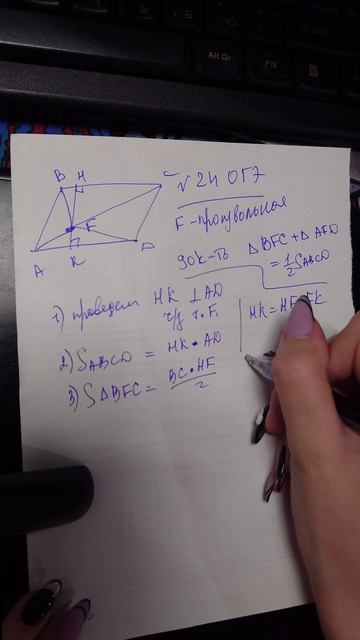 Alt Gr
FN
B H C
F
A K D
√ 24 ОГЭ
F - произвольная
док-ть ΔBFC + ΔAFD
= 1/2 SABCD
1) проведем HK ⊥ AD
ч/з т. F.
2) SABCD = HK • AD
HK = HF + FK
3) SΔBFC = BC • HF / 2